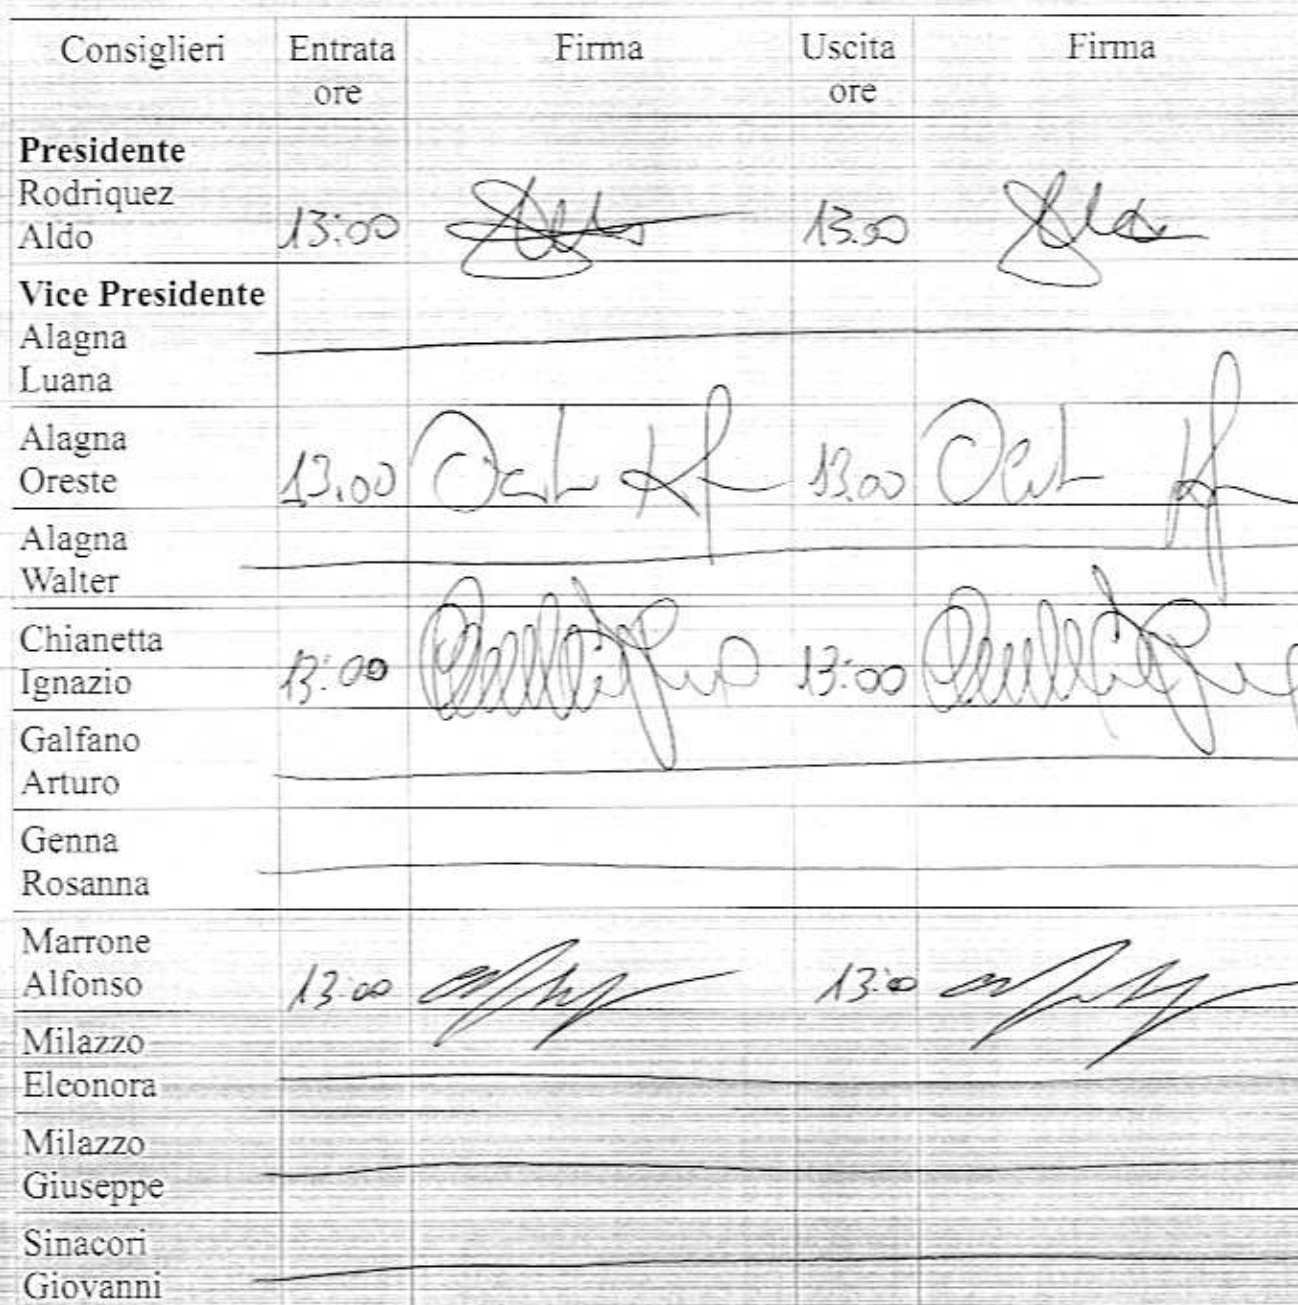 Consiglieri Entrata ore Firma Uscita ore Firma
Presidente
Rodriquez
Aldo 13:00 13.00
Vice Presidente
Alagna
Luana
Alagna
Oreste 13.00 13.00
Alagna
Walter
Chianetta
Ignazio 13:00 13:00
Galfano
Arturo
Genna
Rosanna
Marrone
Alfonso 13:00 13:00
Milazzo
Eleonora
Milazzo
Giuseppe
Sinacori
Giovanni